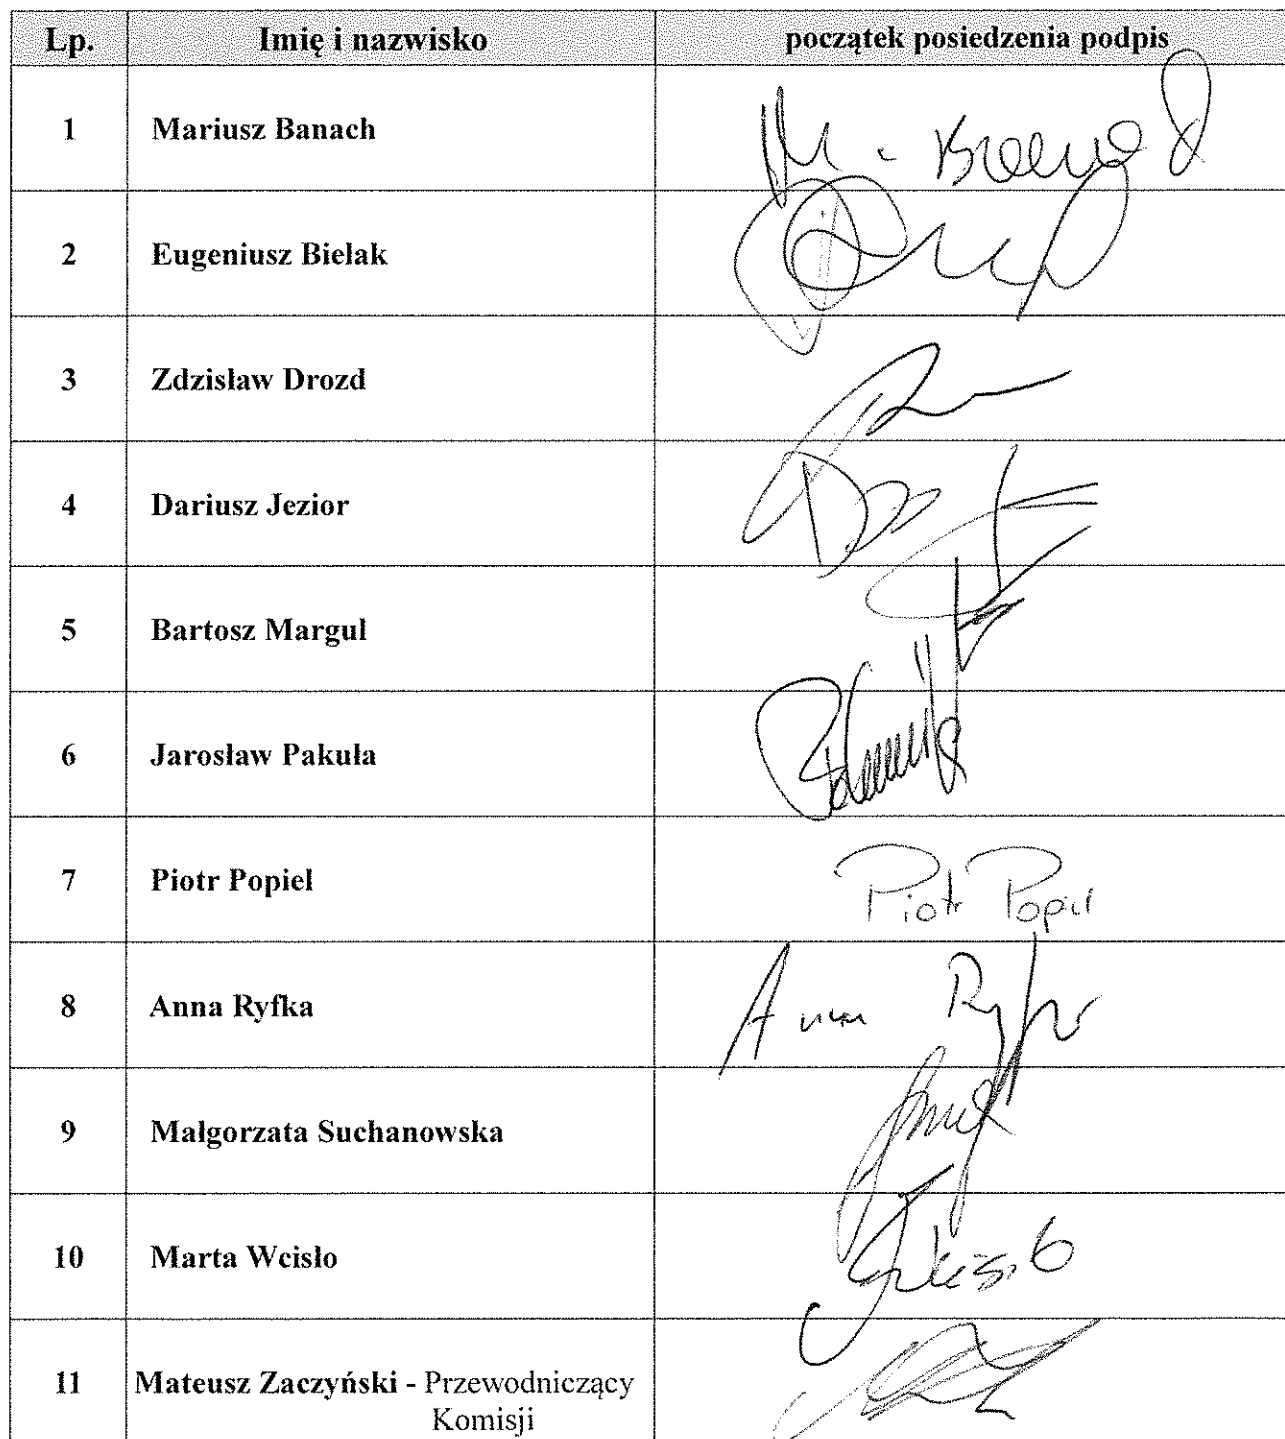 Lp. Imię i nazwisko początek posiedzenia podpis
1 Mariusz Banach
2 Eugeniusz Bielak
3 Zdzisław Drozd
4 Dariusz Jezior
5 Bartosz Margul
6 Jarosław Pakuła
7 Piotr Popiel Piotr Popiel
8 Anna Ryfka Anna
9 Małgorzata Suchanowska
10 Marta Wcisło
11 Mateusz Zaczyński - Przewodniczący
Komisji